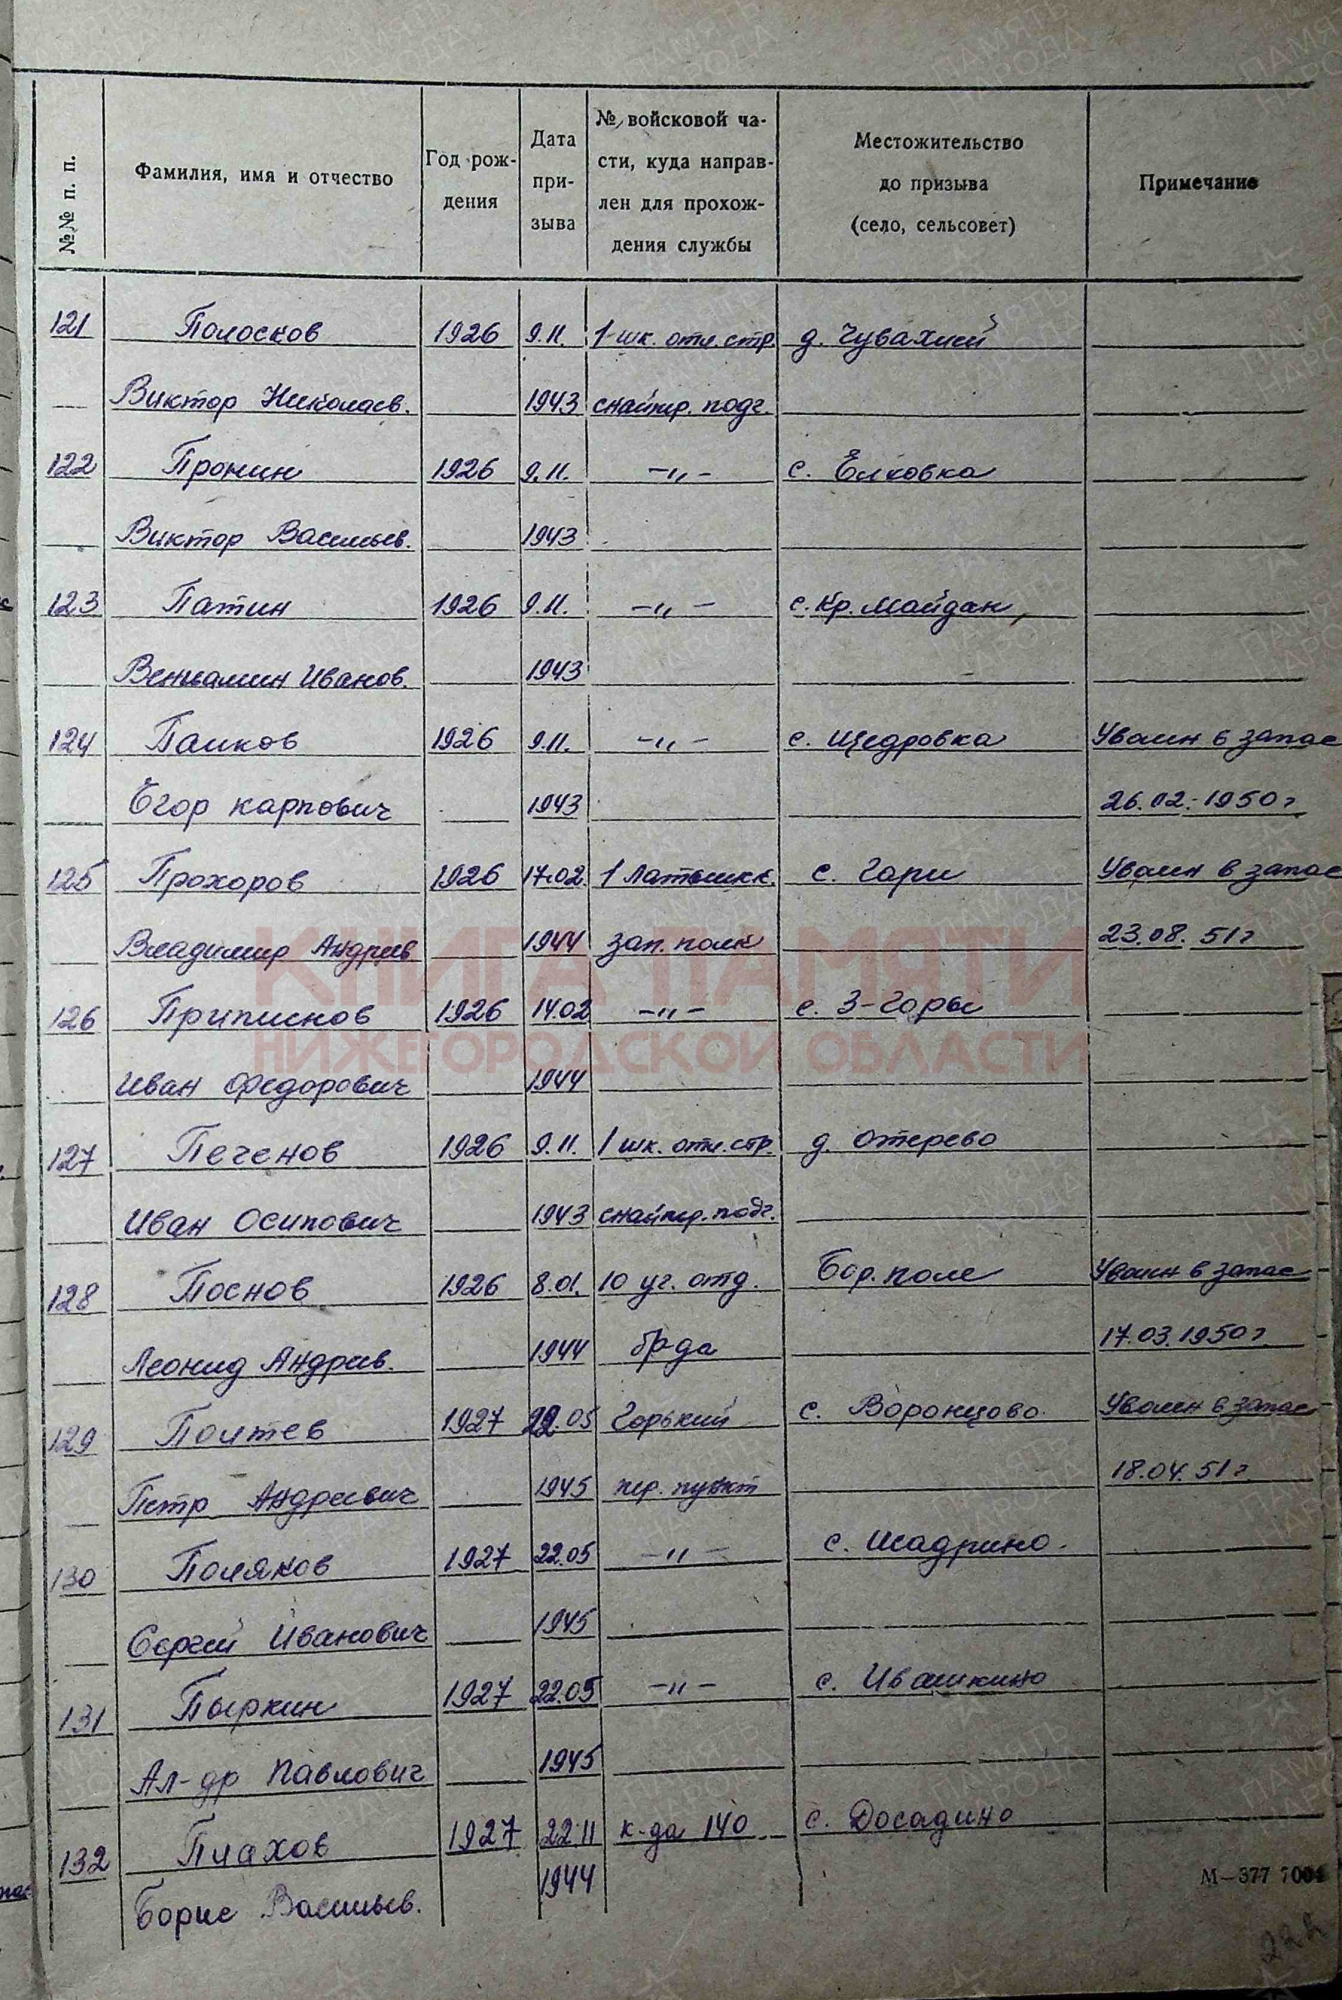 №№ п. п.
Фамилия, имя и отчество
Год рож-
дения
Дата
при-
зыва
№ войсковой ча-
сти, куда направ-
лен для прохож-
дения службы
Местожительство
до призыва
(село, сельсовет)
Примечание
121 Полосков 1926 9.11. 1 шк. отл. стр. д.
Виктор Николаев. 1943 снайпер. подг.
122 Пронин 1926 9.11. -„- с. Елховка
Виктор Васильев. 1943
123 Патин 1926 9.11. -„- с. Кр. Майдан,
Вениамин Иванов. 1943
124 1926 9.11. -„- с. Щедровка Уволен в запас
Егор Карпович 1943 26.02.-1950 г
125 Прохоров 1926 17.02. 1 с. Гари Уволен в запас
Владимир Андреев 1944 зап. полк 23.08. 51 г
126 Приписнов 1926 14.02 -„- с. 3-Горы
Иван Федорович 1944
127 Печенов 1926 9.11. 1 шк. отл. стр. д. Отерево
Иван Осипович 1943 снайпер. подг.
128 Поснов 1926 8.01. 10 уч. отд. Бор. поле Уволен в запас
Леонид Андреев. 1944 бр-да 17.03.1950 г.
129 Полтев 1927 22.05 Горький с. Воронцово. Уволен в запас
Петр Андреевич 1945 пер. пункт 18.04. 51 г.
130 Поляков 1927 22.05 -„- с. Шадрино.
Сергей Иванович 1945
131 Пыркин 1927 22.05 -„- с. Ивашкино
Ал-др Павлович 1945
132 Плахов 1927 22.11 к-да 140 с. Досадино
Борис Васильев. 1944
М—377 7004
222
КНИГА ПАМЯТИ
НИЖЕГОРОДСКОЙ ОБЛАСТИ
ПАМЯТЬ
НАРОДА